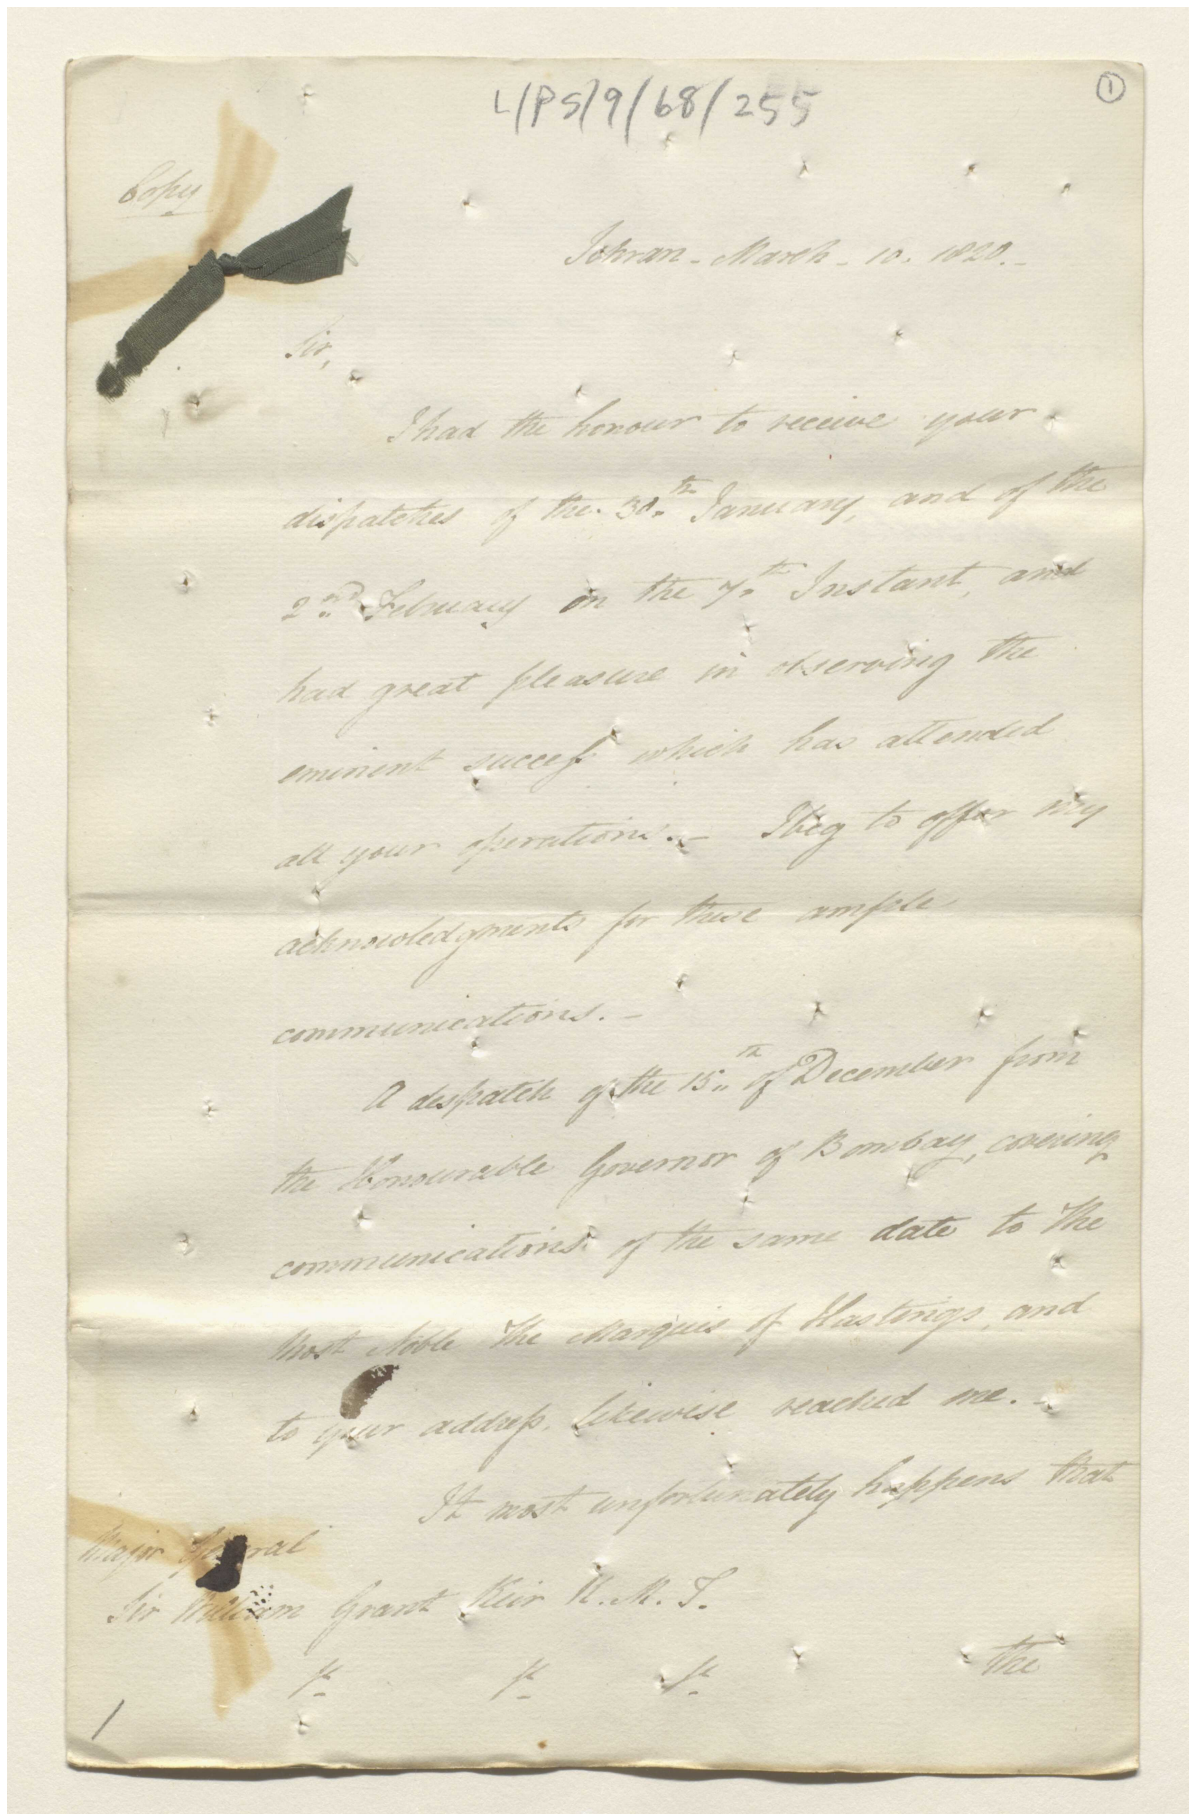 L/PS/9/68/255
1
Copy
Tehran - March - 10. 1820. -
Sir,
I had the honour to receive your
dispatches of the 30.th January, and of the
2.nd February on the 7.th Instant, and
had great pleasure in observing the
eminent success which has attended
all your operations. - I beg to offer my
acknowledgments for these ample
communications. -
A despatch of the 15.th of December from
the Honourable Governor of Bombay, covering
communications of the same date to the
Most Noble The Marquis of Hastings, and
to your address, likewise reached me. -
It most unfortunately happens that
Major General
Sir William Grant Keir K. M. T.
&c &c &c
the
1